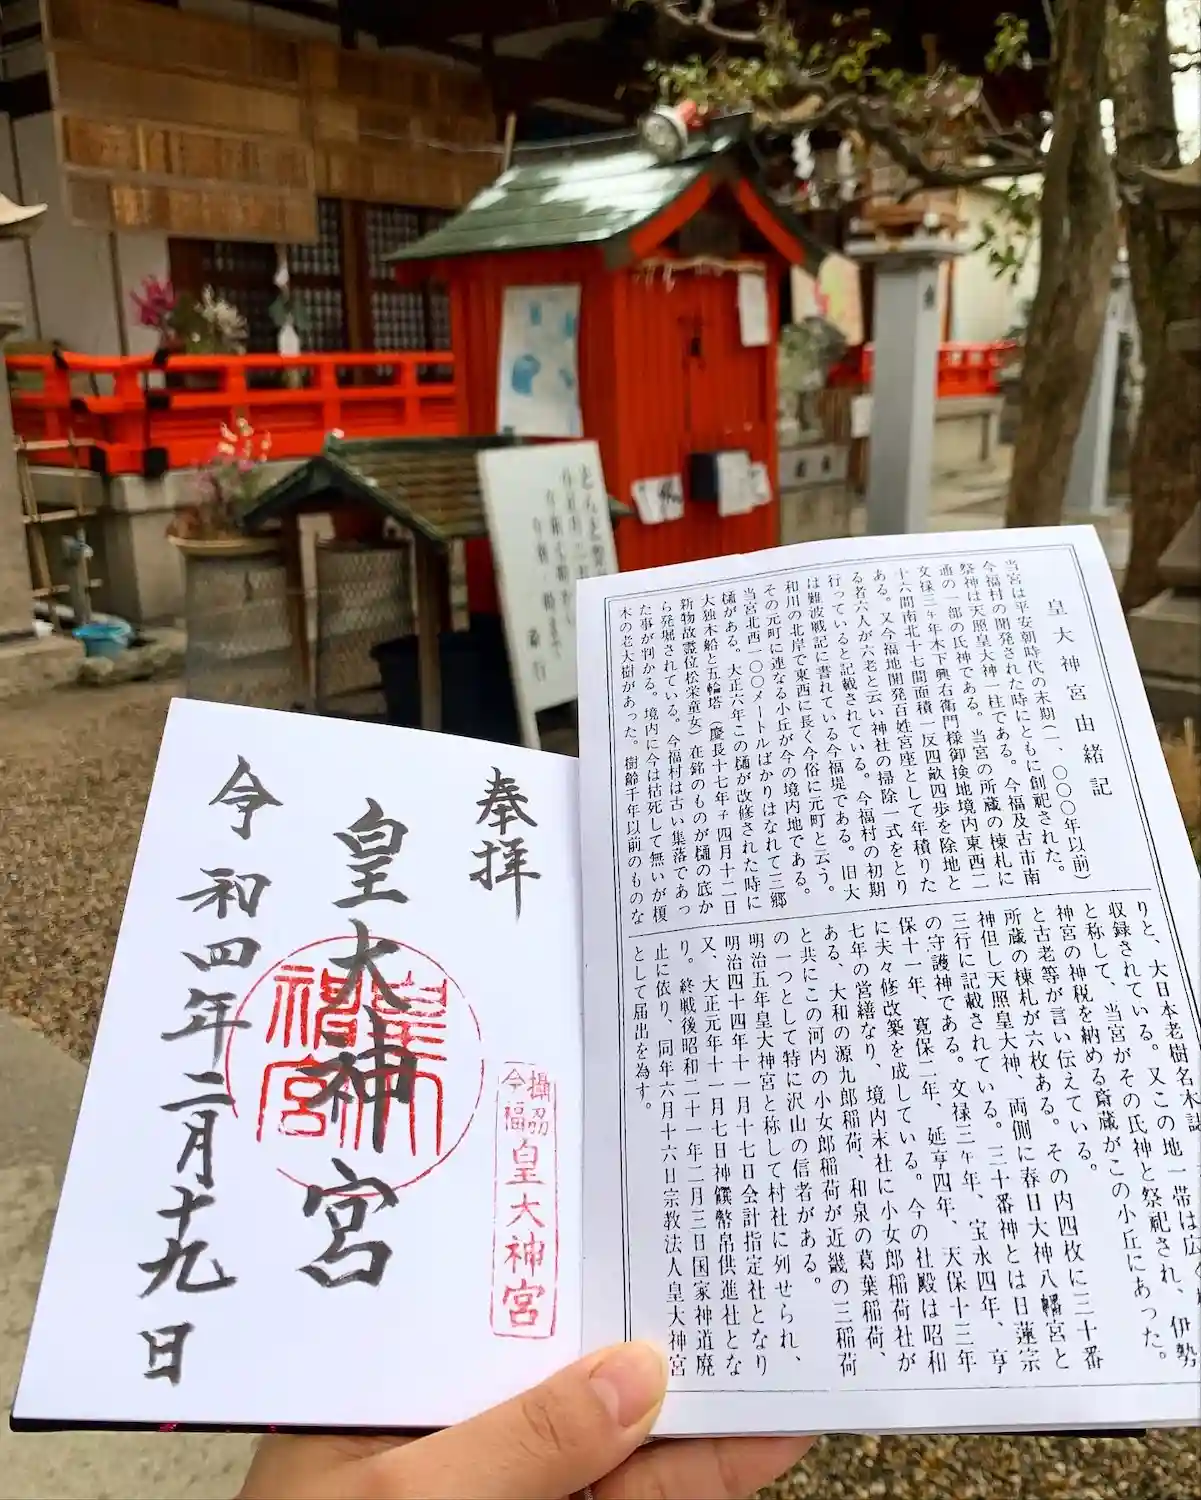 皇大神宮由緒記
当宮は平安朝時代の末期(一、〇〇〇年以前)
今福村の開発された時にともに創祀された。
祭神は天照皇大神一柱である。今福及古市南
通の一部の氏神である。当宮の所蔵の棟札に
文禄三年木下興右衛門様御検地境内東西二
十六間南北十七間面積一反四畝四歩を除地と
ある。又今福地開発百姓宮座として年積りた
る者六人が六老と云い神社の掃除一式をとり
行っていると記載されている。今福村の初期
は難波戦記に書れている今福堤である。旧大
和川の北岸で東西に長く今俗に元町と云う。
その元町に連なる小丘が今の境内地である。
当宮北西一〇〇メートルばかりはなれて三郷
樋がある。大正六年この樋が改修された時に
大独木船と五輪塔(慶長十七年子四月十二日
新物故霊位松栄童女)在銘のものが樋の底か
ら発堀されている。今福村は古い集落であっ
た事が判かる。境内に今は枯死して無いが榎
木の老大樹があった。樹齢千年以前のものな
りと、大日本老樹名木誌
収録されている。又この地一帯は広
と称して、当宮がその氏神と祭祀され、伊勢
神宮の神税を納める斎蔵がこの小丘にあった。
と古老等が言い伝えている。
所蔵の棟札が六枚ある。その内四枚に三十番
神但し天照皇大神、両側に春日大神八幡宮と
三行に記載されている。三十番神とは日蓮宗
の守護神である。文禄三年、宝永四年、享
保十一年、寛保二年、延享四年、天保十三年
に夫々修改築を成している。今の社殿は昭和
七年の営繕なり、境内末社に小女郎稲荷社が
ある、大和の源九郎稲荷、和泉の葛葉稲荷、
と共にこの河内の小女郎稲荷が近畿の三稲荷
の一つとして特に沢山の信者がある。
明治五年皇大神宮と称して村社に列せられ、
明治四十四年十一月十七日会計指定社となり
又、大正元年十一月七日神饌幣帛供進社とな
り。終戦後昭和二十一年二月三日国家神道廃
止に依り、同年六月十六日宗教法人皇大神宮
として届出を為す。
奉拝
皇大神宮
令和四年二月十九日
摂
今福
皇大神宮